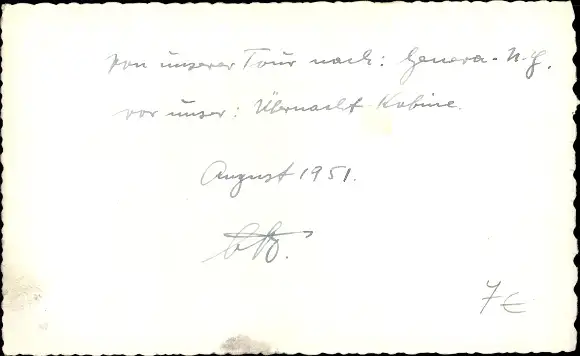 von unserer Tour nach: Geneva - N-Y.
vor unser: Übernacht Kabine.
August 1951.
7€